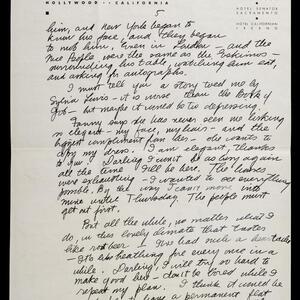 HOLLYWOOD - CALIFORNIA
HOTEL SENATOR
SACRAMENTO
HOTEL CALIFORNIAN
FRESNO
5
him, and New York began to
know his face, and they began
to mob him. Even in London and the
nice people, were the same as the Eskimos -
surrounding his table, watching him eat,
and asking for autographs.
I must tell you a story told me by
Sylvia Lewis - it is worse than the book of
Job - but maybe it would be too depressing.
Fanny says she has never seen me looking
so elegant - my face, my hair - and the
highest compliment from her - she wanted to
copy my dress. I am elegant, thanks
to you. Darling I won't be so long again
all the time I'll be here. The theatres
were exhausting - I wanted to see everything
possible. By the way I can't move into
mine until Thursday. The people must
get out first.
But all the while, no matter what I
do, in this lovely climate that tastes
like rot beer I have had such a
- It's like breathing fire every once in a
while. Darling, I will try so hard to
make good here - don't be bored while I
repeat my plan. I think it would be
to have a permanent flat